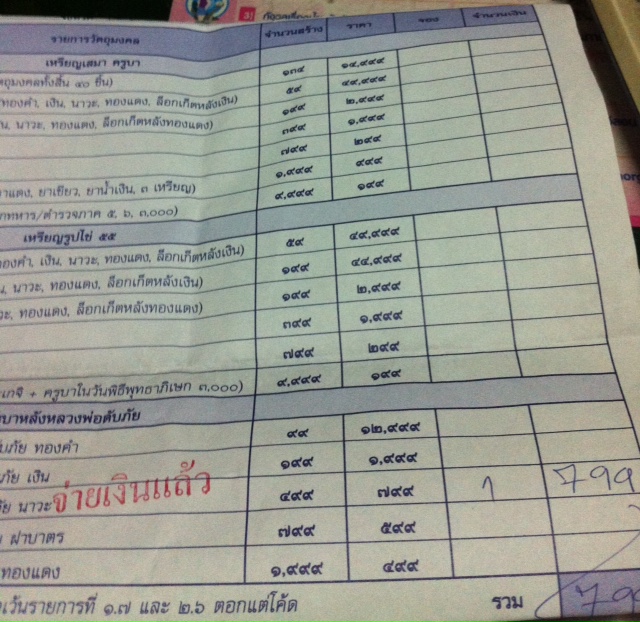 3)
รายการวัตถุมงคล จำนวนสร้าง ราคา จอง จำนวนเงิน
เหรียญเสมา ครูบา
๑๓๕ ๑๕,๙๙๙
ถุมงคลทั้งสิ้น ๔๖ ชิ้น) ๕๙ ๔๙,๙๙๙
ทองคำ, เงิน, นาวะ, ทองแดง, ล็อกเก็ตหลังเงิน) ๑๙๙ ๒,๙๙๙
น, นาวะ, ทองแดง, ล็อกเก็ตหลังทองแดง) ๓๙๙ ๑,๙๙๙
๗๙๙ ๒๙๙
๑,๙๙๙ ๔๙๙
าแดง, ยาเขียว, ยาน้ำเงิน, ๓ เหรียญ) ๙,๙๙๙ ๑๙๙
กทหาร/ตำรวจภาค ๕, ๖, ๓,๐๐๐)
เหรียญรูปไข่ ๕๕
องคำ, เงิน, นาวะ, ทองแดง, ล็อกเก็ตหลังเงิน) ๕๙ ๔๙,๙๙๙
น, นาวะ, ทองแดง, ล็อกเก็ตหลังเงิน) ๑๙๙ ๔๔,๙๙๙
ะ, ทองแดง, ล็อกเก็ตหลังทองแดง) ๑๙๙ ๒,๙๙๙
๓๙๙ ๑,๙๙๙
๗๙๙ ๒๙๙
เกจิ + ครูบาในวันพิธีพุทธาภิเษก ๓,๐๐๐) ๙,๙๙๙ ๑๙๙
บาหลังหลวงพ่อดับภัย
ับภัย ทองคำ ๙๙ ๑๒,๙๙๙
ภัย เงิน ๑๙๙ ๑,๙๙๙
ัย นาวะ จ่ายเงินแล้ว ๔๙๙ ๗๙๙ 1 799
ฝาบาตร ๗๙๙ ๕๙๙
ทองแดง ๑,๙๙๙ ๔๙๙
เว้นรายการที่ ๑.๗ และ ๒.๖ ตอกแต่โค้ด รวม 799